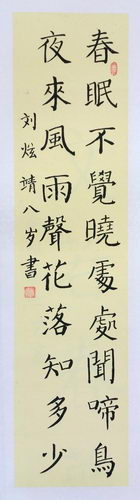 春眠不覺曉處處聞啼鳥
夜來風雨聲花落知多少
刘炫靖八岁書